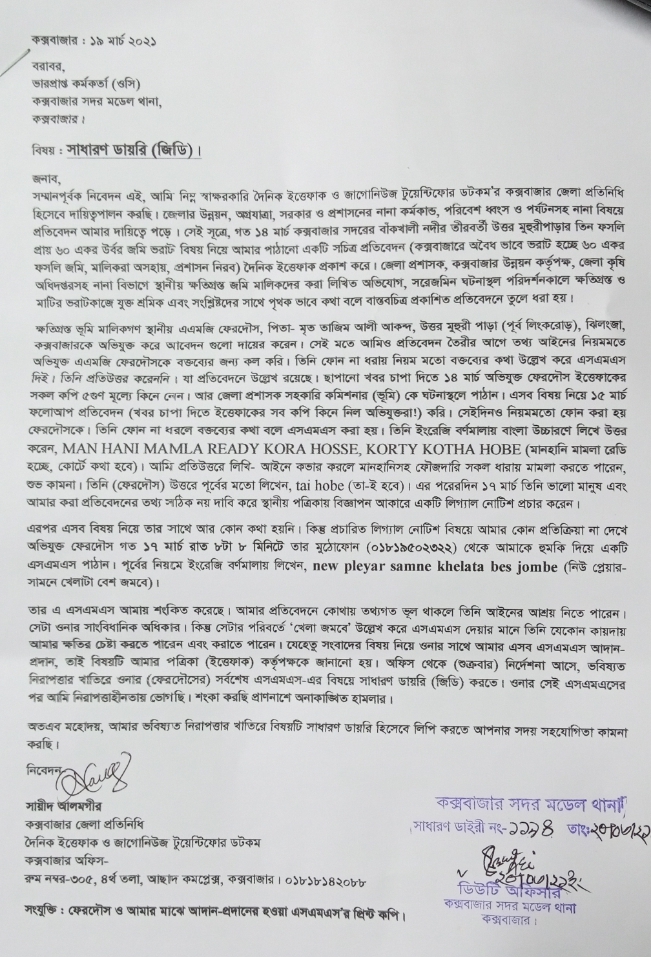 কক্সবাজার : ১৯ মার্চ ২০২১
বরাবর,
ভারপ্রাপ্ত কর্মকর্তা (ওসি)
কক্সবাজার সদর মডেল থানা,
কক্সবাজার।
বিষয় : সাধারণ ডায়রি (জিডি)।
জনাব,
সম্মানপূর্বক নিবেদন এই, আমি নিম্ন স্বাক্ষরকারি দৈনিক ইত্তেফাক ও জাগোনিউজ টুয়েন্টিফোর ডটকম'র কক্সবাজার জেলা প্রতিনিধি
হিসেবে দায়িত্বপালন করছি। জেলার উন্নয়ন, অগ্রযাত্রা, সরকার ও প্রশাসনের নানা কর্মকান্ড, পরিবেশ ধ্বংস ও পর্যটনসহ নানা বিষয়ে
প্রতিবেদন আমার দায়িত্বে পড়ে। সেই সূত্রে, গত ১৪ মার্চ কক্সবাজার সদরের বাঁকখালী নদীর তীরবর্তী উত্তর মুহুরীপাড়ার তিন ফসলি
প্রায় ৬০ একর উর্বর জমি ভরাট বিষয় নিয়ে আমার পাঠানো একটি সচিত্র প্রতিবেদন (কক্সবাজারে অবৈধ ভাবে ভরাট হচ্ছে ৬০ একর
ফসলি জমি, মালিকরা অসহায়, প্রশাসন নিরব) দৈনিক ইত্তেফাক প্রকাশ করে। জেলা প্রশাসক, কক্সবাজার উন্নয়ন কর্তৃপক্ষ, জেলা কৃষি
অধিদপ্তরসহ নানা বিভাগে স্থানীয় ক্ষতিগ্রস্ত জমি মালিকদের করা লিখিত অভিযোগ, সরেজমিন ঘটনাস্থল পরিদর্শনকালে ক্ষতিগ্রস্ত ও
মাটির ভরাটকাজে যুক্ত শ্রমিক এবং সংশ্লিষ্টদের সাথে পৃথক ভাবে কথা বলে বাস্তবচিত্র প্রকাশিত প্রতিবেদনে তুলে ধরা হয়।
ক্ষতিগ্রস্ত ভূমি মালিকগণ স্থানীয় এএমজি ফেরদৌস, পিতা- মৃত তাজিম আলী আকন্দ, উত্তর মুহুরী পাড়া (পূর্ব লিংকরোড), ঝিলংজা,
কক্সবাজারকে অভিযুক্ত করে আবেদন গুলো দায়ের করেন। সেই মতে আমিও প্রতিবেদন তৈরীর আগে তথ্য আইনের নিয়মমতে
অভিযুক্ত এএমজি ফেরদৌসকে বক্তব্যের জন্য কল করি। তিনি ফোন না ধরায় নিয়ম মতো বক্তব্যের কথা উল্লেখ করে এসএমএস
দিই। তিনি প্রতিউত্তর করেননি। যা প্রতিবেদনে উল্লেখ রয়েছে। ছাপানো খবর চাপা দিতে ১৪ মার্চ অভিযুক্ত ফেরদৌস ইত্তেফাকের
সকল কপি ৫গুণ মূল্যে কিনে নেন। আর জেলা প্রশাসক সহকারি কমিশনার (ভূমি) কে ঘটনাস্থলে পাঠান। এসব বিষয় নিয়ে ১৫ মার্চ
ফলোআপ প্রতিবেদন (খবর চাপা দিতে ইত্তেফাকের সব কপি কিনে নিল অভিযুক্তরা!) করি। সেইদিনও নিয়মমতো ফোন করা হয়
ফেরদৌসকে। তিনি ফোন না ধরলে বক্তব্যের কথা বলে এসএমএস করা হয়। তিনি ইংরেজি বর্ণমালায় বাংলা উচ্চারণে লিখে উত্তর
করেন, MAN HANI MAMLA READY KORA HOSSE, KORTY KOTHA HOBE (মানহানি মামলা রেডি
হচ্ছে, কোর্টে কথা হবে)। আমি প্রতিউত্তরে লিখি- আইনে কভার করলে মানহানিসহ ফৌজদারি সকল ধারায় মামলা করতে পারেন,
শুভ কামনা। তিনি (ফেরদৌস) উত্তরে পূর্বের মতো লিখেন, tai hobe (তা-ই হবে)। এর পরেরদিন ১৭ মার্চ তিনি ভালো মানুষ এবং
আমার করা প্রতিবেদনের তথ্য সঠিক নয় দাবি করে স্থানীয় পত্রিকায় বিজ্ঞাপন আকারে একটি লিগ্যাল নোটিশ প্রচার করেন।
এরপর এসব বিষয় নিয়ে তার সাথে আর কোন কথা হয়নি। কিন্তু প্রচারিত লিগ্যাল নোটিশ বিষয়ে আমার কোন প্রতিক্রিয়া না দেখে
অভিযুক্ত ফেরদৌস গত ১৭ মার্চ রাত ৮টা ৮ মিনিটে তার মুঠোফোন (০১৮১৯৫০২৩২২) থেকে আমাকে হুমকি দিয়ে একটি
এসএমএস পাঠান। পূর্বের নিয়মে ইংরেজি বর্ণমালায় লিখেন, new pleyar samne khelata bes jombe (নিউ প্লেয়ার-
সামনে খেলাটা বেশ জমবে)।
তার এ এসএমএস আমায় শংকিত করেছে। আমার প্রতিবেদনে কোথায় তথ্যগত ভুল থাকলে তিনি আইনের আশ্রয় নিতে পারেন।
সেটা ওনার সাংবিধানিক অধিকার। কিন্তু সেটার পরিবর্তে 'খেলা জমবে' উল্লেখ করে এসএমএস দেয়ার মানে তিনি যেকোন কায়দায়
আমার ক্ষতির চেষ্টা করতে পারেন এবং করাতে পারেন। যেহেতু সংবাদের বিষয় নিয়ে ওনার সাথে আমার এসব এসএমএস আদান-
প্রদান, তাই বিষয়টি আমার পত্রিকা (ইত্তেফাক) কর্তৃপক্ষকে জানানো হয়। অফিস থেকে (শুক্রবার) নির্দেশনা আসে, ভবিষ্যত
নিরাপত্তার খাতিরে ওনার (ফেরদৌসের) সর্বশেষ এসএমএস-এর বিষয়ে সাধারণ ডায়রি (জিডি) করতে। ওনার সেই এসএমএসের
পর আমি নিরাপত্তাহীনতায় ভোগছি। শংকা করছি প্রাণনাশে অনাকাঙ্খিত হামলার।
অতএব মহোদয়, আমার ভবিষ্যত নিরাপত্তার খাতিরে বিষয়টি সাধারণ ডায়রি হিসেবে লিপি করতে আপনার সদয় সহযোগিতা কামনা
করছি।
নিবেদন
সায়ীদ আলমগীর
কক্সবাজার জেলা প্রতিনিধি
দৈনিক ইত্তেফাক ও জাগোনিউজ টুয়েন্টিফোর ডটকম
কক্সবাজার অফিস-
রুম নম্বর-৩০৫, ৪র্থ তলা, আছাদ কমপ্লেক্স, কক্সবাজার। ০১৮১৮১৪২০৮৮
সংযুক্তি : ফেরদৌস ও আমার মাঝে আদান-প্রদানের হওয়া এসএমএস'র প্রিন্ট কপি।
কক্সবাজার সদর মডেল থানা
সাধারণ ডাইরী নং-১১৭৪ তাং
ডিউটি অফিসার
কক্সবাজার সদর মডেল থানা
কক্সবাজার।